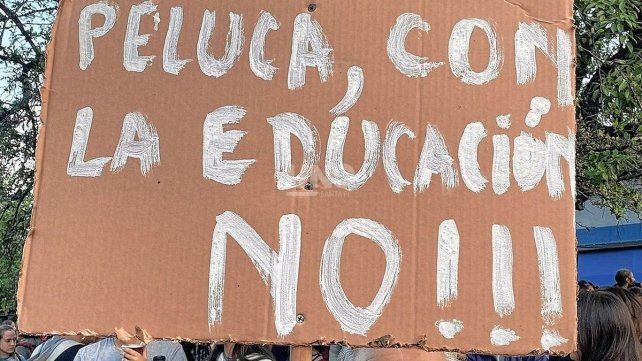 PELUCA, CON
LA EDUCACIÓN
NO!!!